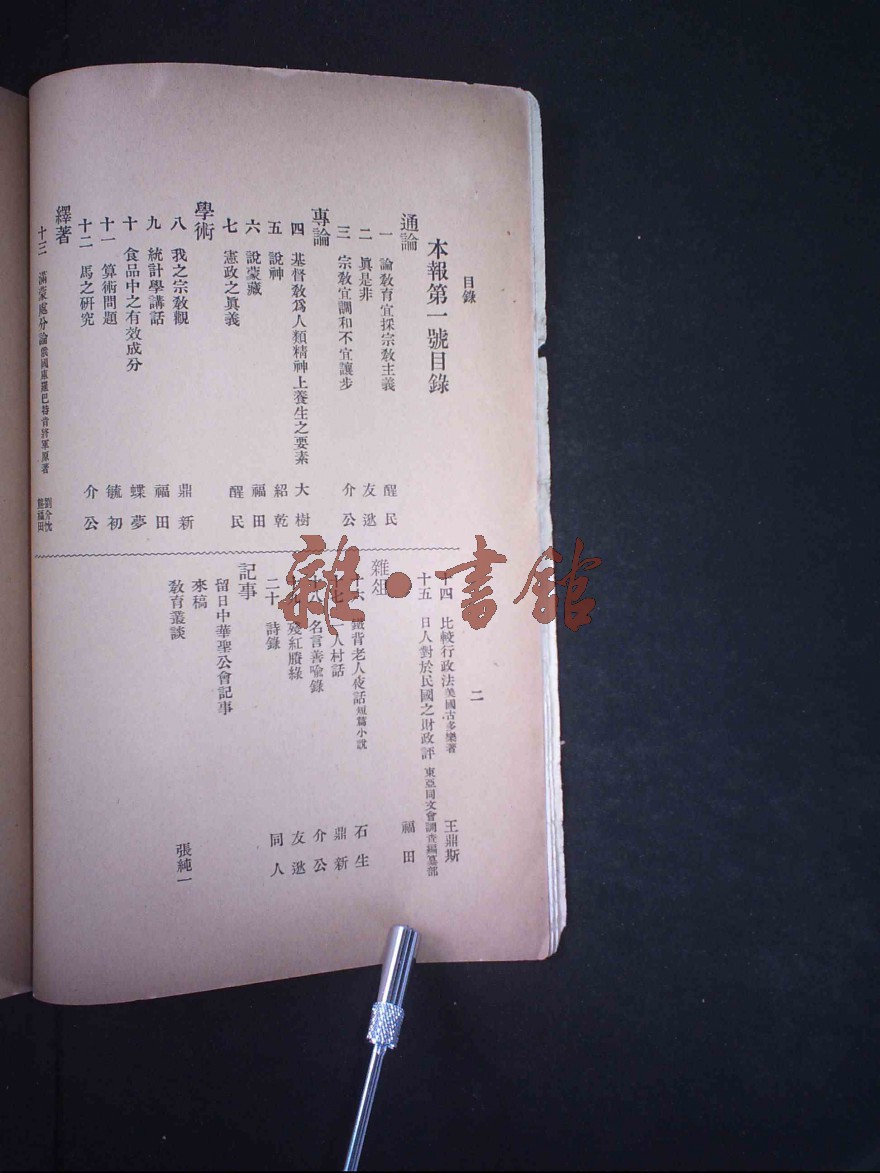 目錄
二
本報第一號目錄
通論
一 論教育宜採宗教主義 醒民
二 眞是非 友逖
三 宗教宜調和不宜讓步 介公
專論
四 基督教爲人類精神上養生之要素 大樹
五 說神 紹乾
六 說蒙藏 福田
七 憲政之眞義 醒民
學術
八 我之宗教觀 鼎新
九 統計學講話 福田
十 食品中之有效成分 蝶夢
十一 算術問題 毓初
十二 馬之研究 介公
繹著
十三 滿蒙處分論俄國庫羅巴特肯將軍原著 劉介忱 福田
十四 比較行政法美國古多樂著 王鼎斯
十五 日人對於民國之財政評 東亞同文會調查編纂部 福田
雜俎
十六 鐵背老人夜話短篇小說 石生
十七 一人村話 鼎新
十八 名言善喩錄 介公
十九 殘紅賸綠 友逖
二十 詩錄 同人
記事
留日中華聖公會記事
來稿
教育叢談 張純一
雜·書館